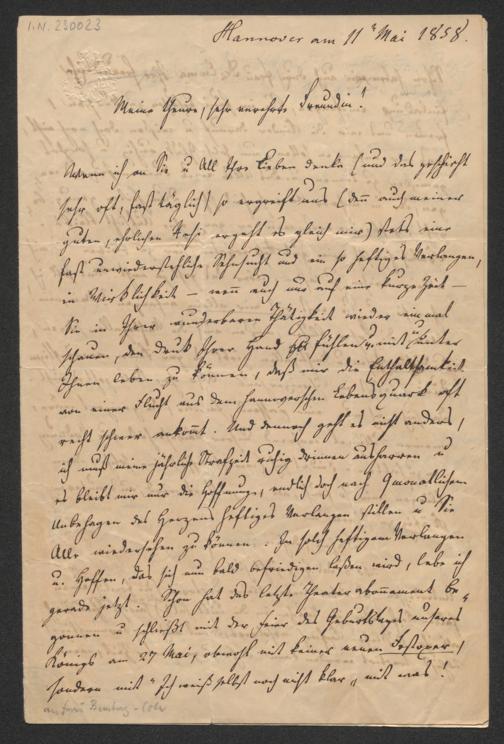 I.N. 230023
Hannover am 11ᵗ Mai 1858.
Meine theure, sehr verehrte Freundin!
Wenn ich an Sie u All Ihre Lieben denke (und das geschieht
sehr oft, fast täglich) so ergreift uns (denn auch meiner
guten, ehrlichen Resi ergeht es gleich mir) stets eine
fast unwiederstehliche Sehnsucht und ein so heftiges Verlangen,
in Wirklichkeit – wenn auch nur auf eine kurze Zeit –
Sie in Ihrer wunderbaren Thätigkeit wieder einmal
schauen, den Druck Ihrer Hand fühlen u mit u unter
Ihnen leben zu können, daß mir die Enthaltsamkeit
von einer Flucht aus dem hannoverschen Lebensquark oft
recht schwer ankommt. Und dennoch geht es nicht anders,
ich muß meine jährliche Strafzeit ruhig drinnen ausharren u
es bleibt mir nur die Hoffnung, endlich doch nach 9 monatlichem
Unbehagen des Herzens heftiges Verlangen stillen u Sie
Alle wiedersehen zu können. In solch heftigem Verlangen
u. Hoffen, das sich nun bald befriedigen lassen wird, lebe ich
gerade jetzt. Schon hat das letzte Theaterabonnement be-
gonnen u schließt mit der Feier des Geburtstages unseres
Königs am 27 Mai, obwohl mit keiner neuen Festoper,
sondern mit "Ich weiß selbst noch nicht klar" mit was!
an Frau